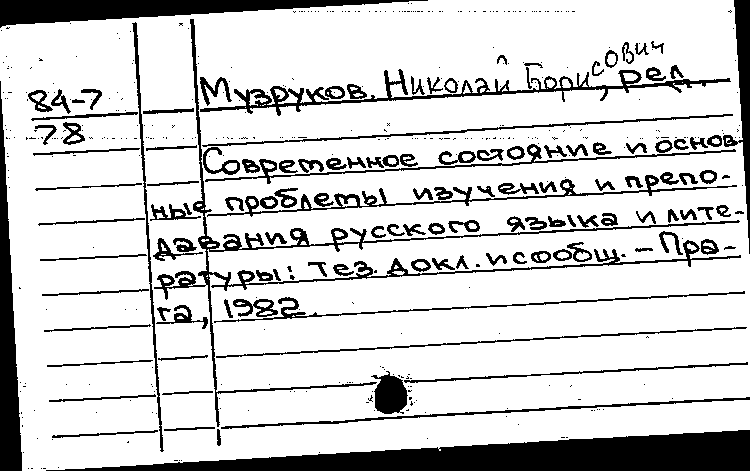 84-7
78
Музруков. Николай Борисович, ред.
Современное состояние и основ-
ные проблемы изучения и препо-
давания русского языка и лите-
ратуры: тез. докл. и сообщ. – Пра-
га, 1982.